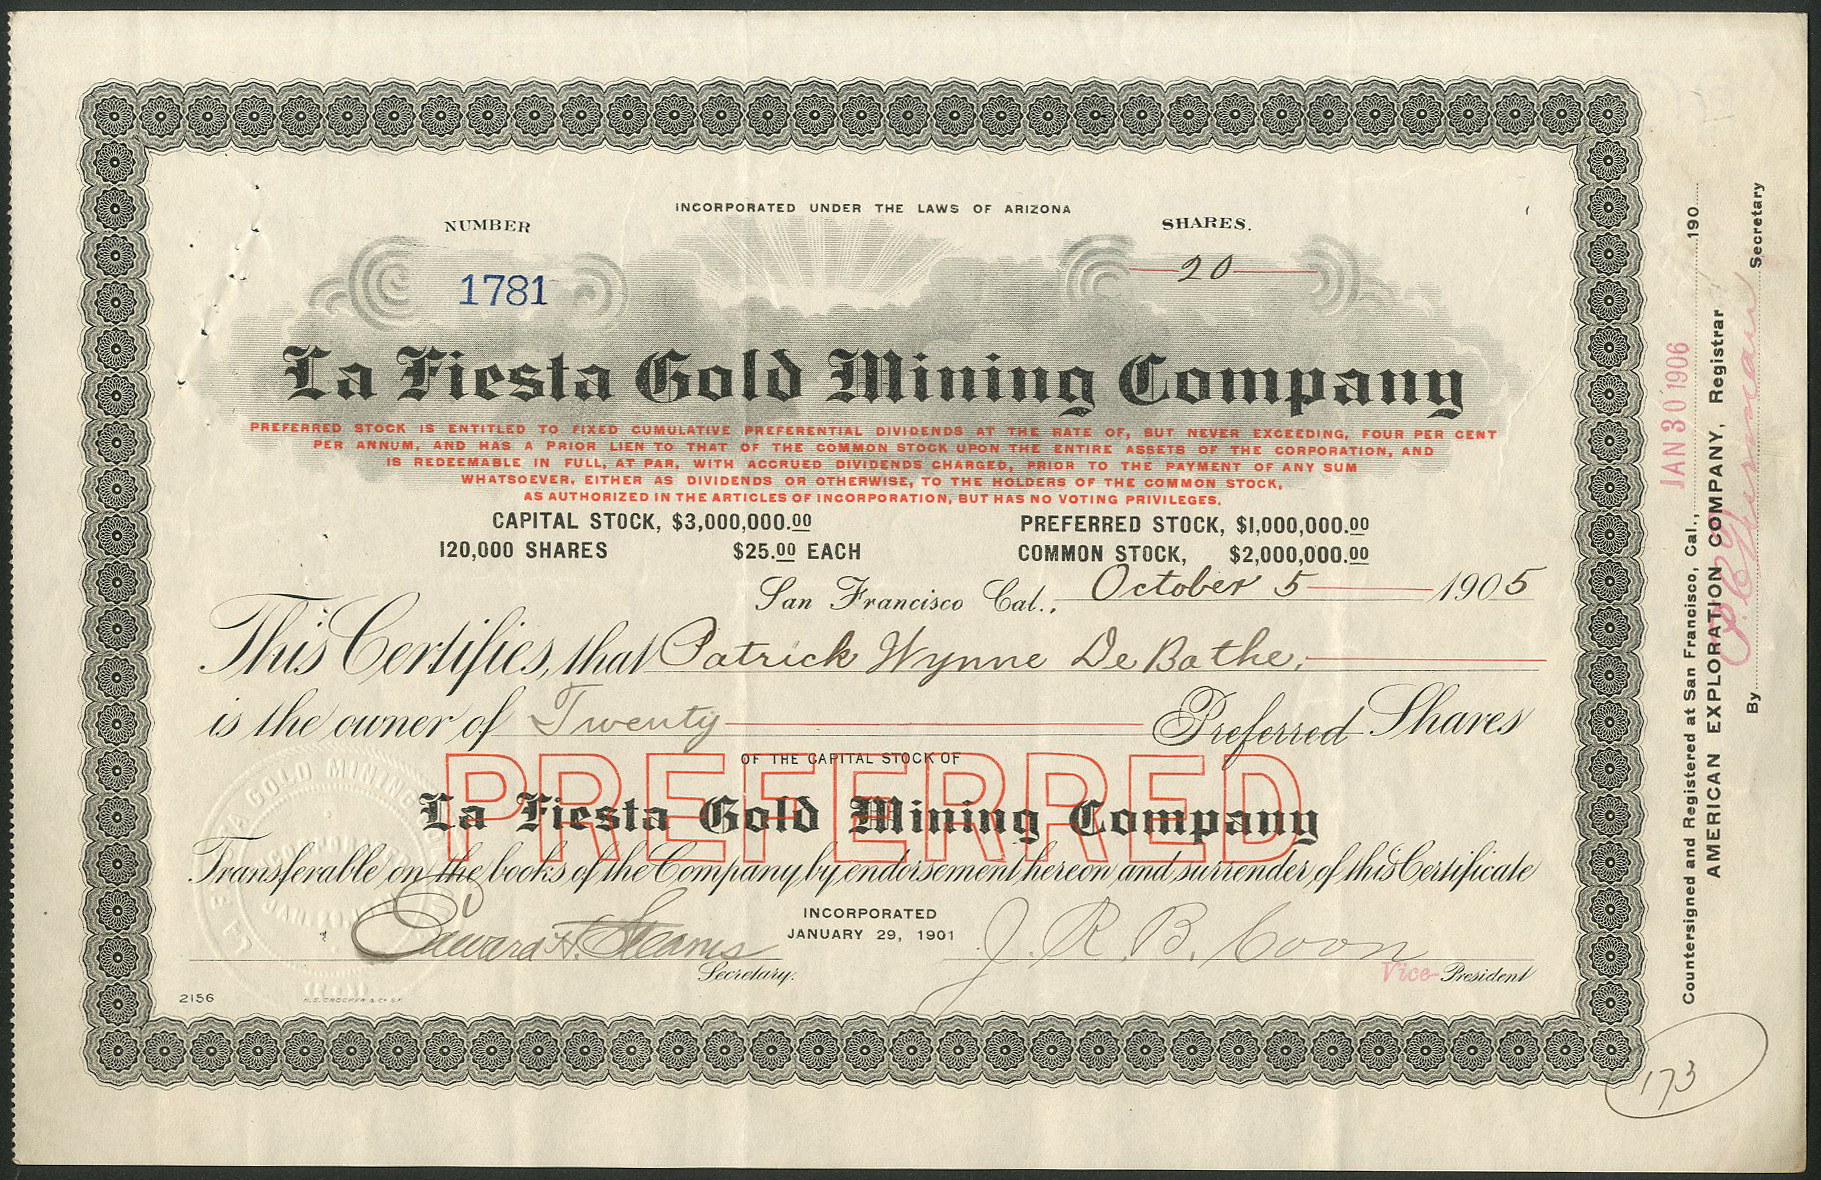 INCORPORATED UNDER THE LAWS OF ARIZONA
NUMBER
SHARES.
1781
20
La Fiesta Gold Mining Company
PREFERRED STOCK IS ENTITLED TO FIXED CUMULATIVE PREFERENTIAL DIVIDENDS AT THE RATE OF, BUT NEVER EXCEEDING, FOUR PER CENT
PER ANNUM, AND HAS A PRIOR LIEN TO THAT OF THE COMMON STOCK UPON THE ENTIRE ASSETS OF THE CORPORATION, AND
IS REDEEMABLE IN FULL, AT PAR, WITH ACCRUED DIVIDENDS CHARGED, PRIOR TO THE PAYMENT OF ANY SUM
WHATSOEVER, EITHER AS DIVIDENDS OR OTHERWISE, TO THE HOLDERS OF THE COMMON STOCK,
AS AUTHORIZED IN THE ARTICLES OF INCORPORATION, BUT HAS NO VOTING PRIVILEGES.
CAPITAL STOCK, $3,000,000.00
PREFERRED STOCK, $1,000,000.00
120,000 SHARES $25.00 EACH
COMMON STOCK, $2,000,000.00
San Francisco Cal., October 5 1905
This Certifies, that Patrick Wynne De Bathe,
is the owner of Twenty Preferred Shares
OF THE CAPITAL STOCK OF
PREFERRED
La Fiesta Gold Mining Company
Transferable on the books of the Company by endorsement hereon and surrender of this Certificate
INCORPORATED
JANUARY 29, 1901
Edward H. Stearns
J. R. B. Coon
Secretary.
Vice-President
2156
H.S. CROCKER & CO. S.F.
GOLD MINING
Countersigned and Registered at San Francisco, Cal., 190
JAN 30 1906
AMERICAN EXPLORATION COMPANY, Registrar
By Secretary
173